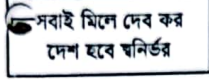 সবাই মিলে দেব কর
দেশ হবে স্বনির্ভর